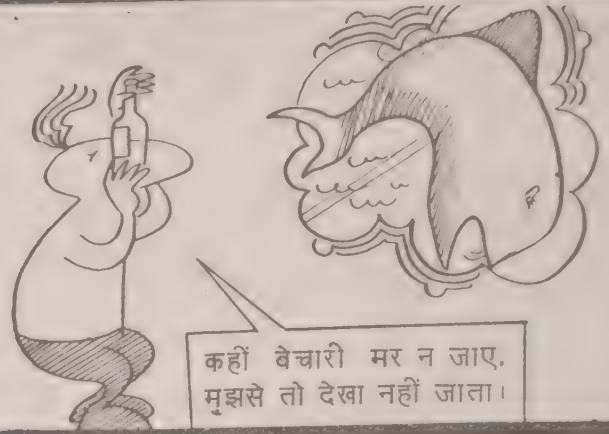 कहीं बेचारी मर न जाए.
मुझसे तो देखा नहीं जाता।